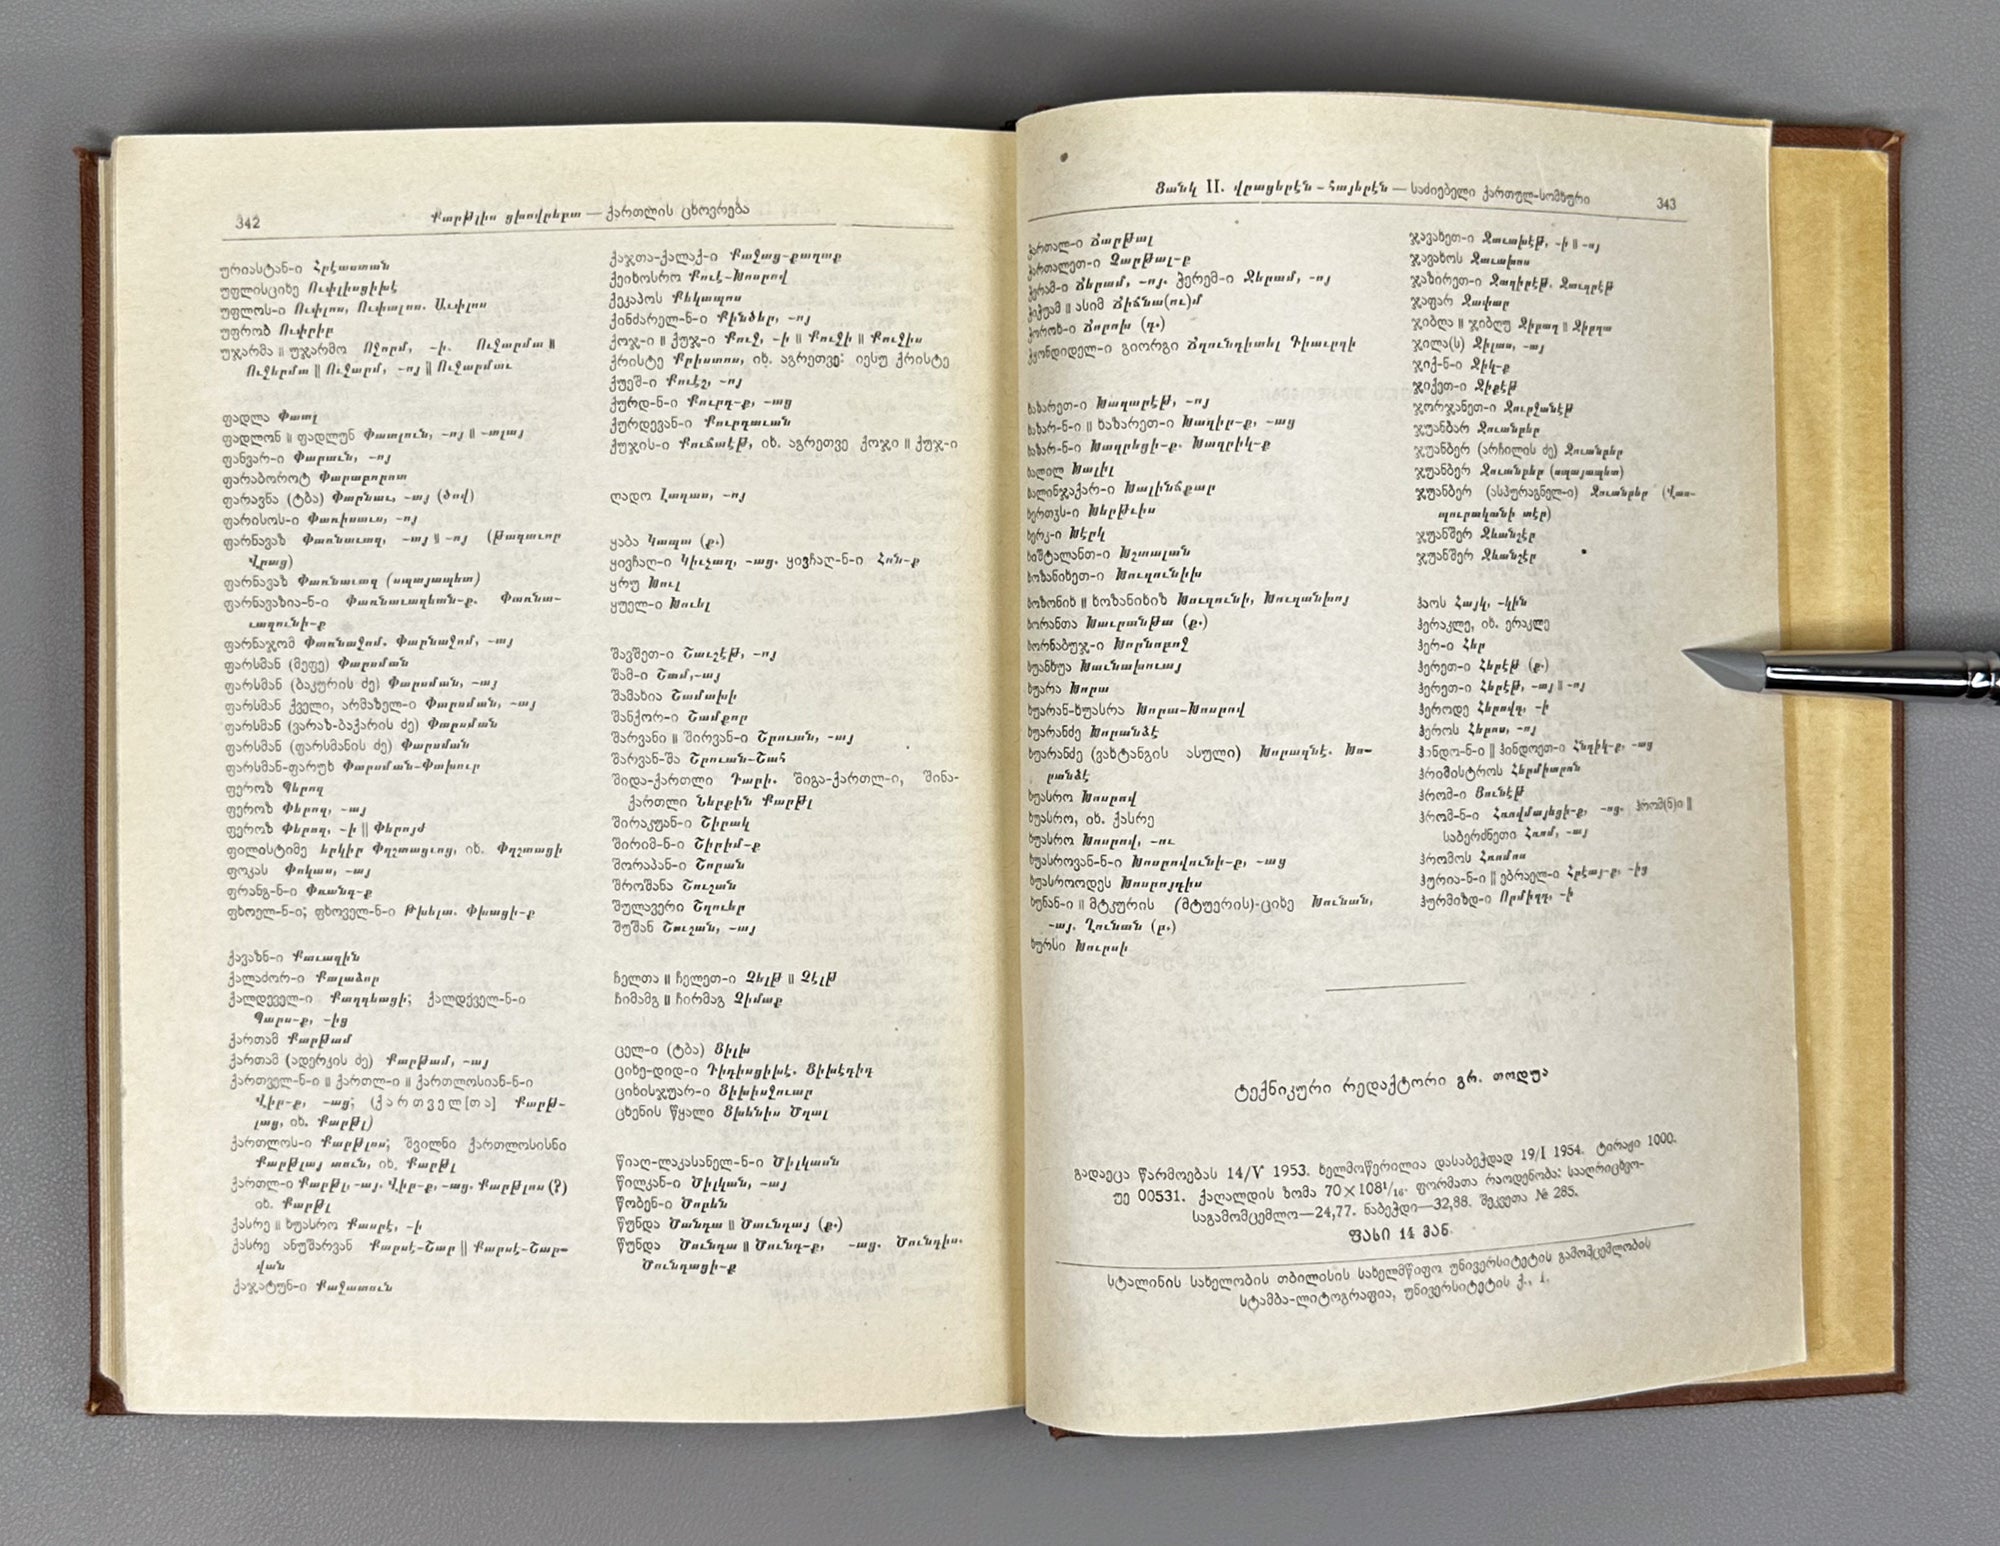 342
Քարթլիս ցխովրեբա — ქართლის ცხოვრება
ურიასტან-ი Հրէաստան
უფლისციხე Ուփլիսցիխէ
უფლოს-ი Ուփլոս, Ուփալոս. Աւփլոս
უფრობ Ուփրիբ
უჯარმა || უჯარმო Ոջորմ, -ի. Ուջարմա ||
Ուջերմա || Ուջարմ, -ոյ || Ուջարմաւ
ფადლა Փատլ
ფადლონ || ფადლუნ Փատլուն, -ոյ || -տլայ
ფანვარ-ი Փարաւն, -ոյ
ფარაბოროტ Փարաբորոտ
ფარავნა (ტბა) Փարնաւ, -այ (ծով)
ფარისოს-ი Փառիսաւս, -ոյ
ფარნავაზ Փառնաւազ, -այ || -ոյ (Թագաւոր
Վրաց)
ფარნავაზ Փառնաւազ (սպայապետ)
ფარნავაზია-ნ-ი Փառնաւազեան-ք. Փառնա-
ւազունի-ք
ფარნაჯომ Փառնաջոմ. Փարնաջոմ, -այ
ფარსმან (მეფე) Փարսման
ფარსმან (ბაკურის ძე) Փարսման, -այ
ფარსმან ქველი, არმაზელ-ი Փարսման, -այ
ფარსმან (ვარაზ-ბაქარის ძე) Փարսման
ფარსმან (ფარსმანის ძე) Փարսման
ფარსმან-ფარუხ Փարսման-Փախուր
ფეროზ Պերոզ
ფეროზ Փերոզ, -այ
ფეროზ Փերոզ, -ի || Փերոյժ
ფილისტიმე երկիր Փղշտացւոց, იხ. Փղշտացի
ფოკას Փոկաս, -այ
ფრანგ-ნ-ი Փռանգ-ք
ფხოელ-ნ-ი; ფხოველ-ნ-ი Թխելա. Փխացի-ք
ქავაზნ-ი Քաւազին
ქალაძორ-ი Քալաձոր
ქალდეველ-ი Քաղդեացի; ქალდეველ-ნ-ი
Պարս-ք, -ից
ქართამ Քարթամ
ქართამ (ადერკის ძე) Քարթամ, -այ
ქართველ-ნ-ი || ქართლ-ი || ქართლოსიან-ნ-ი
Վիր-ք, -աց; (ქართველ[თა] Քարթ-
լաց, იხ. Քարթլ)
ქართლოს-ი Քարթլոս; შვილნი ქართლოსისნი
Քարթլայ տուն, იხ. Քարթլ
ქართლ-ი Քարթլ, -այ. Վիր-ք, -աց. Քարթլոս (?)
იხ. Քարթլ
ქასრე || ხუასრო Քասրէ, -ի
ქასრე ანუშარვან Քարսէ-Շար || Քարսէ-Շար-
վան
ქაჯატუნ-ი Քաջատուն
ქაჯთა-ქალაქ-ი Քաջաց-քաղաք
ქეიხოსრო Քուէ-Խոսրով
ქეკაპოს Քեկապոս
ქინძარელ-ნ-ი Քինձեր, -ոյ
ქოჯ-ი || ქუჯ-ი Քուջ, -ի || Քուջի || Քուջիս
ქრისტე Քրիստոս, იხ. აგრეთვე: იესუ ქრისტე
ქუეშ-ი Քուէշ, -ոյ
ქურდ-ნ-ი Քուրդ-ք, -աց
ქურდევან-ი Քուրդաւան
ქუჯის-ი Քուճաէթ, იხ. აგრეთვე ქოჯი || ქუჯ-ი
ღადო Ղադաս, -ոյ
ყაბა Կապա (ք.)
ყივჩაღ-ი Կիւչաղ, -աց. ყივჩაღ-ნ-ი Հոն-ք
ყრუ Խուլ
ყუელ-ი Խուել
შავშეთ-ი Շաւշէթ, -ոյ
შამ-ი Շամ,-այ
შამახია Շամախի
შანქორ-ი Շամքոր
შარვანი || შირვან-ი Շրուան, -այ
შარვან-შა Շրուան-Շահ
შიდა-ქართლი Դարի. შიგა-ქართლ-ი, შინა-
ქართლი Ներքին Քարթլ
შირაკუან-ი Շիրակ
შირიმ-ნ-ი Շիրիմ-ք
შორაპან-ი Շորան
შროშანა Շուշան
შულავერი Շղուեր
შუშან Շուշան, -այ
ჩელთა || ჩელეთ-ი Չելթ || Չէլթ
ჩიმამგ || ჩირმაგ Չիմաք
ცელ-ი (ტბა) Ցիլխ
ციხე-დიდ-ი Դիդիսցիխէ. Ցիխէդիդ
ციხისჯუარ-ი Ցիխիսջուար
ცხენის წყალი Ցխենիս Ծղալ
წიაღ-ლაკასანელ-ნ-ი Ծիլկասն
წილკან-ი Ծիլկան, -այ
წობენ-ი Ծորեն
წუნდა Ծանդա || Ծաւնդայ (ք.)
წუნდა Ծունդա || Ծունդ-ք, -աց. Ծունդիս.
Ծունդացի-ք
Ցանկ II. վրացերէն - հայերէն — საძიებელი ქართულ-სომხური
343
ჭართალ-ი Ճարթալ
ჭართალეთ-ი Չարթալ-ք
ჭერამ-ი Ճերամ, -ոյ. ჭერემ-ი Ջերամ, -ոյ
ჭიჭუამ || ასიმ Ճիճնա(ու)մ
ჭოროხ-ი Ճորոխ (դ.)
ჭყონდიდელ-ი გიორგი Ճղունդիտել Գիաւրգի
ხაზარეთ-ი Խազարէթ, -ոյ
ხაზარ-ნ-ი || ხაზარეთ-ი Խազիր-ք, -աց
ხაზარ-ნ-ი Խազրեցի-ք. Խազրիկ-ք
ხალილ Խալիլ
ხალინჯაქარ-ი Խալինճքար
ხერთვს-ი Խերթւիս
ხერკ-ი Խէրկ
ხიშტალანთ-ი Խշտալան
ხოზანიხეთ-ი Խուզունիխ
ხოზონიხ || ხოზანიხიზ Խուզունի, Խուզանխոյ
ხორანთა Խաւրանթա (ք.)
ხორნაბუჯ-ი Խորնաբոջ
ხუანხუა Խաւնախուայ
ხუარა Խորա
ხუარან-ხუასრა Խորա-Խոսրով
ხუარანძე Խորանձէ
ხუარანძე (ვახტანგის ასული) Խորագնէ. Խո-
րանձէ
ხუასრო Խոսրով
ხუასრო, იხ. ქასრე
ხუასრო Խոսրով, -ու
ხუასროვან-ნ-ი Խոսրովունի-ք, -աց
ხუასროოდეს Խոսրոյդիս
ხუნან-ი || მტკურის (მტუერის)-ციხე Խունան,
-այ. Ղունան (բ.)
ხურსი Խուրսի
ჯავახეთ-ი Ջաւախէթ, -ի || -ոյ
ჯავახოს Ջաւախոս
ჯაზირეთ-ი Ջաղիրէթ. Ջաւղրէթ
ჯაფარ Ջափար
ჯიბღა || ჯიბღუ Ջիբաղ || Ջիբղա
ჯილა(ს) Ջիլաս, -այ
ჯიქ-ნ-ი Ջիկ-ք
ჯიქეთ-ი Ջիքէթ
ჯორჯანეთ-ი Ջուրջանէթ
ჯუანბარ Ջուանբեր
ჯუანბერ (არჩილის ძე) Ջուանբեր
ჯუანბერ Ջուանբեր (սպայապետ)
ჯუანბერ (ასპურაგნელ-ი) Ջուանբեր (Վաս-
պուրականի տէր)
ჯუანშერ Ջեւանշէր
ჯუანშერ Ջեւանշէր
ჰაოს Հայկ, -կին
ჰერაკლე, იხ. ერაკლე
ჰერ-ი Հեր
ჰერეთ-ი Հերէթ (ք.)
ჰერეთ-ი Հերէթ, -այ || -ոյ
ჰეროდე Հերովդ, -ի
ჰეროს Հերոս, -ոյ
ჰანდო-ნ-ი || ჰინდოეთ-ი Հնդիկ-ք, -աց
ჰრიმისტროს Հերմիտրոն
ჰრომ-ი Յունէթ
ჰრომ-ნ-ი Հռովմայեցի-ք, -ոց. ჰრომ(ნ)ი ||
საბერძნეთი Հռոմ, -այ
ჰრომოს Հռոմոս
ჰურია-ნ-ი || ებრაელ-ი Հրէայ-ք, -ից
ჰურმიზდ-ი Որմիզդ, -ի
ტექნიკური რედაქტორი გრ. თოდუა
გადაეცა წარმოებას 14/V 1953. ხელმოწერილია დასაბეჭდად 19/I 1954. ტირაჟი 1000.
უე 00531. ქაღალდის ზომა 70×108¹/₁₆. ფორმათა რაოდენობა: სააღრიცხვო-
საგამომცემლო—24,77. ნაბეჭდი—32,88. შეკვეთა № 285.
ფასი 14 მან.
სტალინის სახელობის თბილისის სახელმწიფო უნივერსიტეტის გამომცემლობის
სტამბა-ლიტოგრაფია, უნივერსიტეტის ქ., 1.